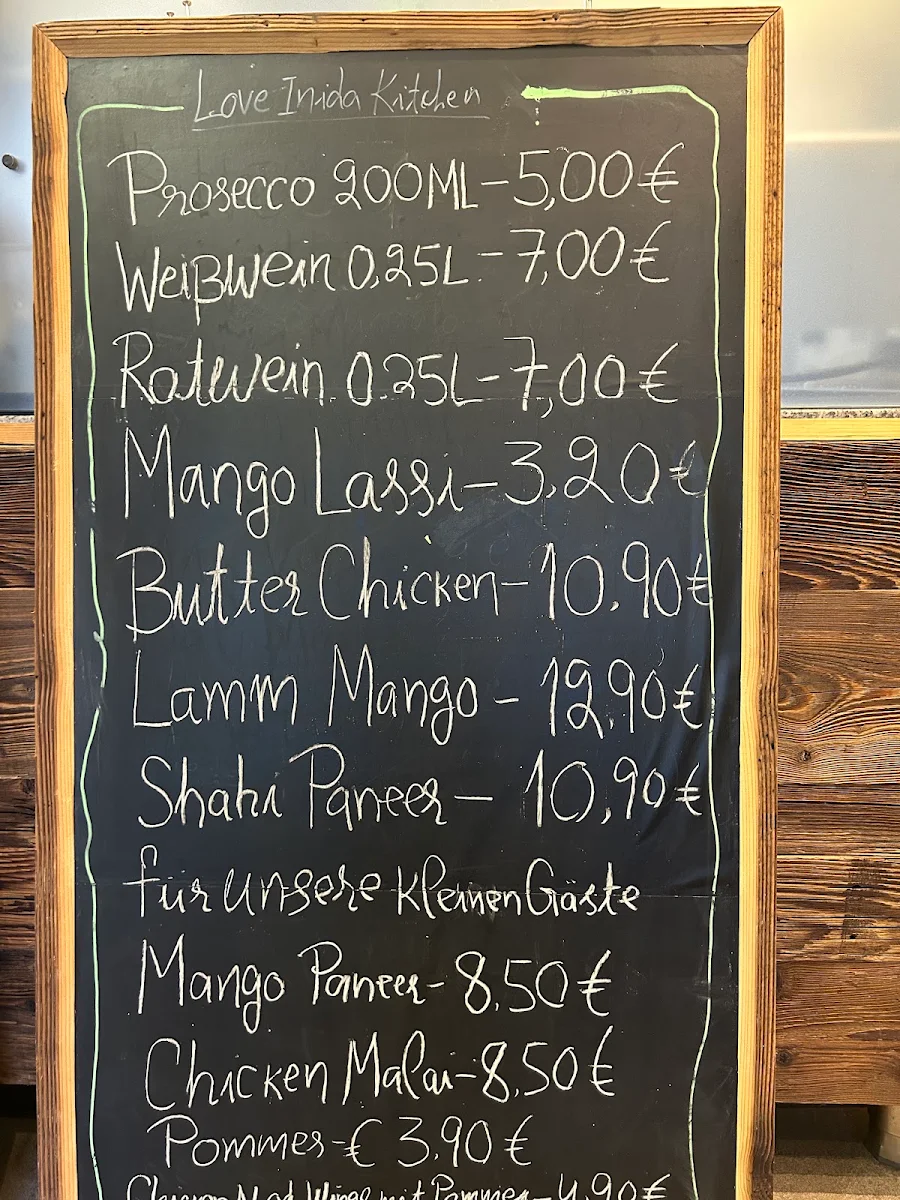 Love Inida Kitchen
Prosecco 200ML-5,00€
Weißwein 0,25L-7,00€
Rotwein 0.25L-7,00€
Mango Lassi-3,20€
Butter Chicken-10.90€
Lamm Mango - 12,90€
Shahi Paneer- 10,90€
für unsere kleinen Gäste
Mango Paneer-8,50€
Chicken Malai-8,50€
Pommes-€ 3.90€
mit Pommes-4,90€